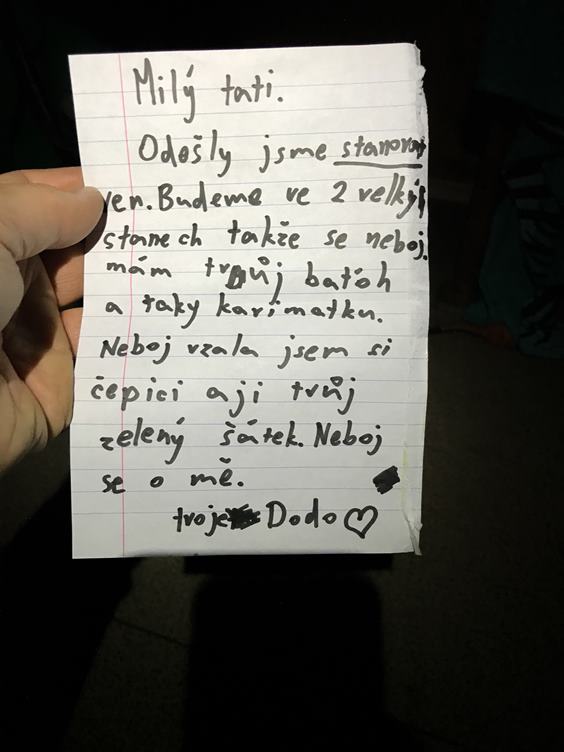 Milý tati.
Odešly jsme stanovat
ven. Budeme ve 2 velkých
stanech takže se neboj.
mám tvůj baťoh
a taky karimatku.
Neboj vzala jsem si
čepici aji tvůj
zelený šátek. Neboj
se o mě.
tvoje Dodo♡